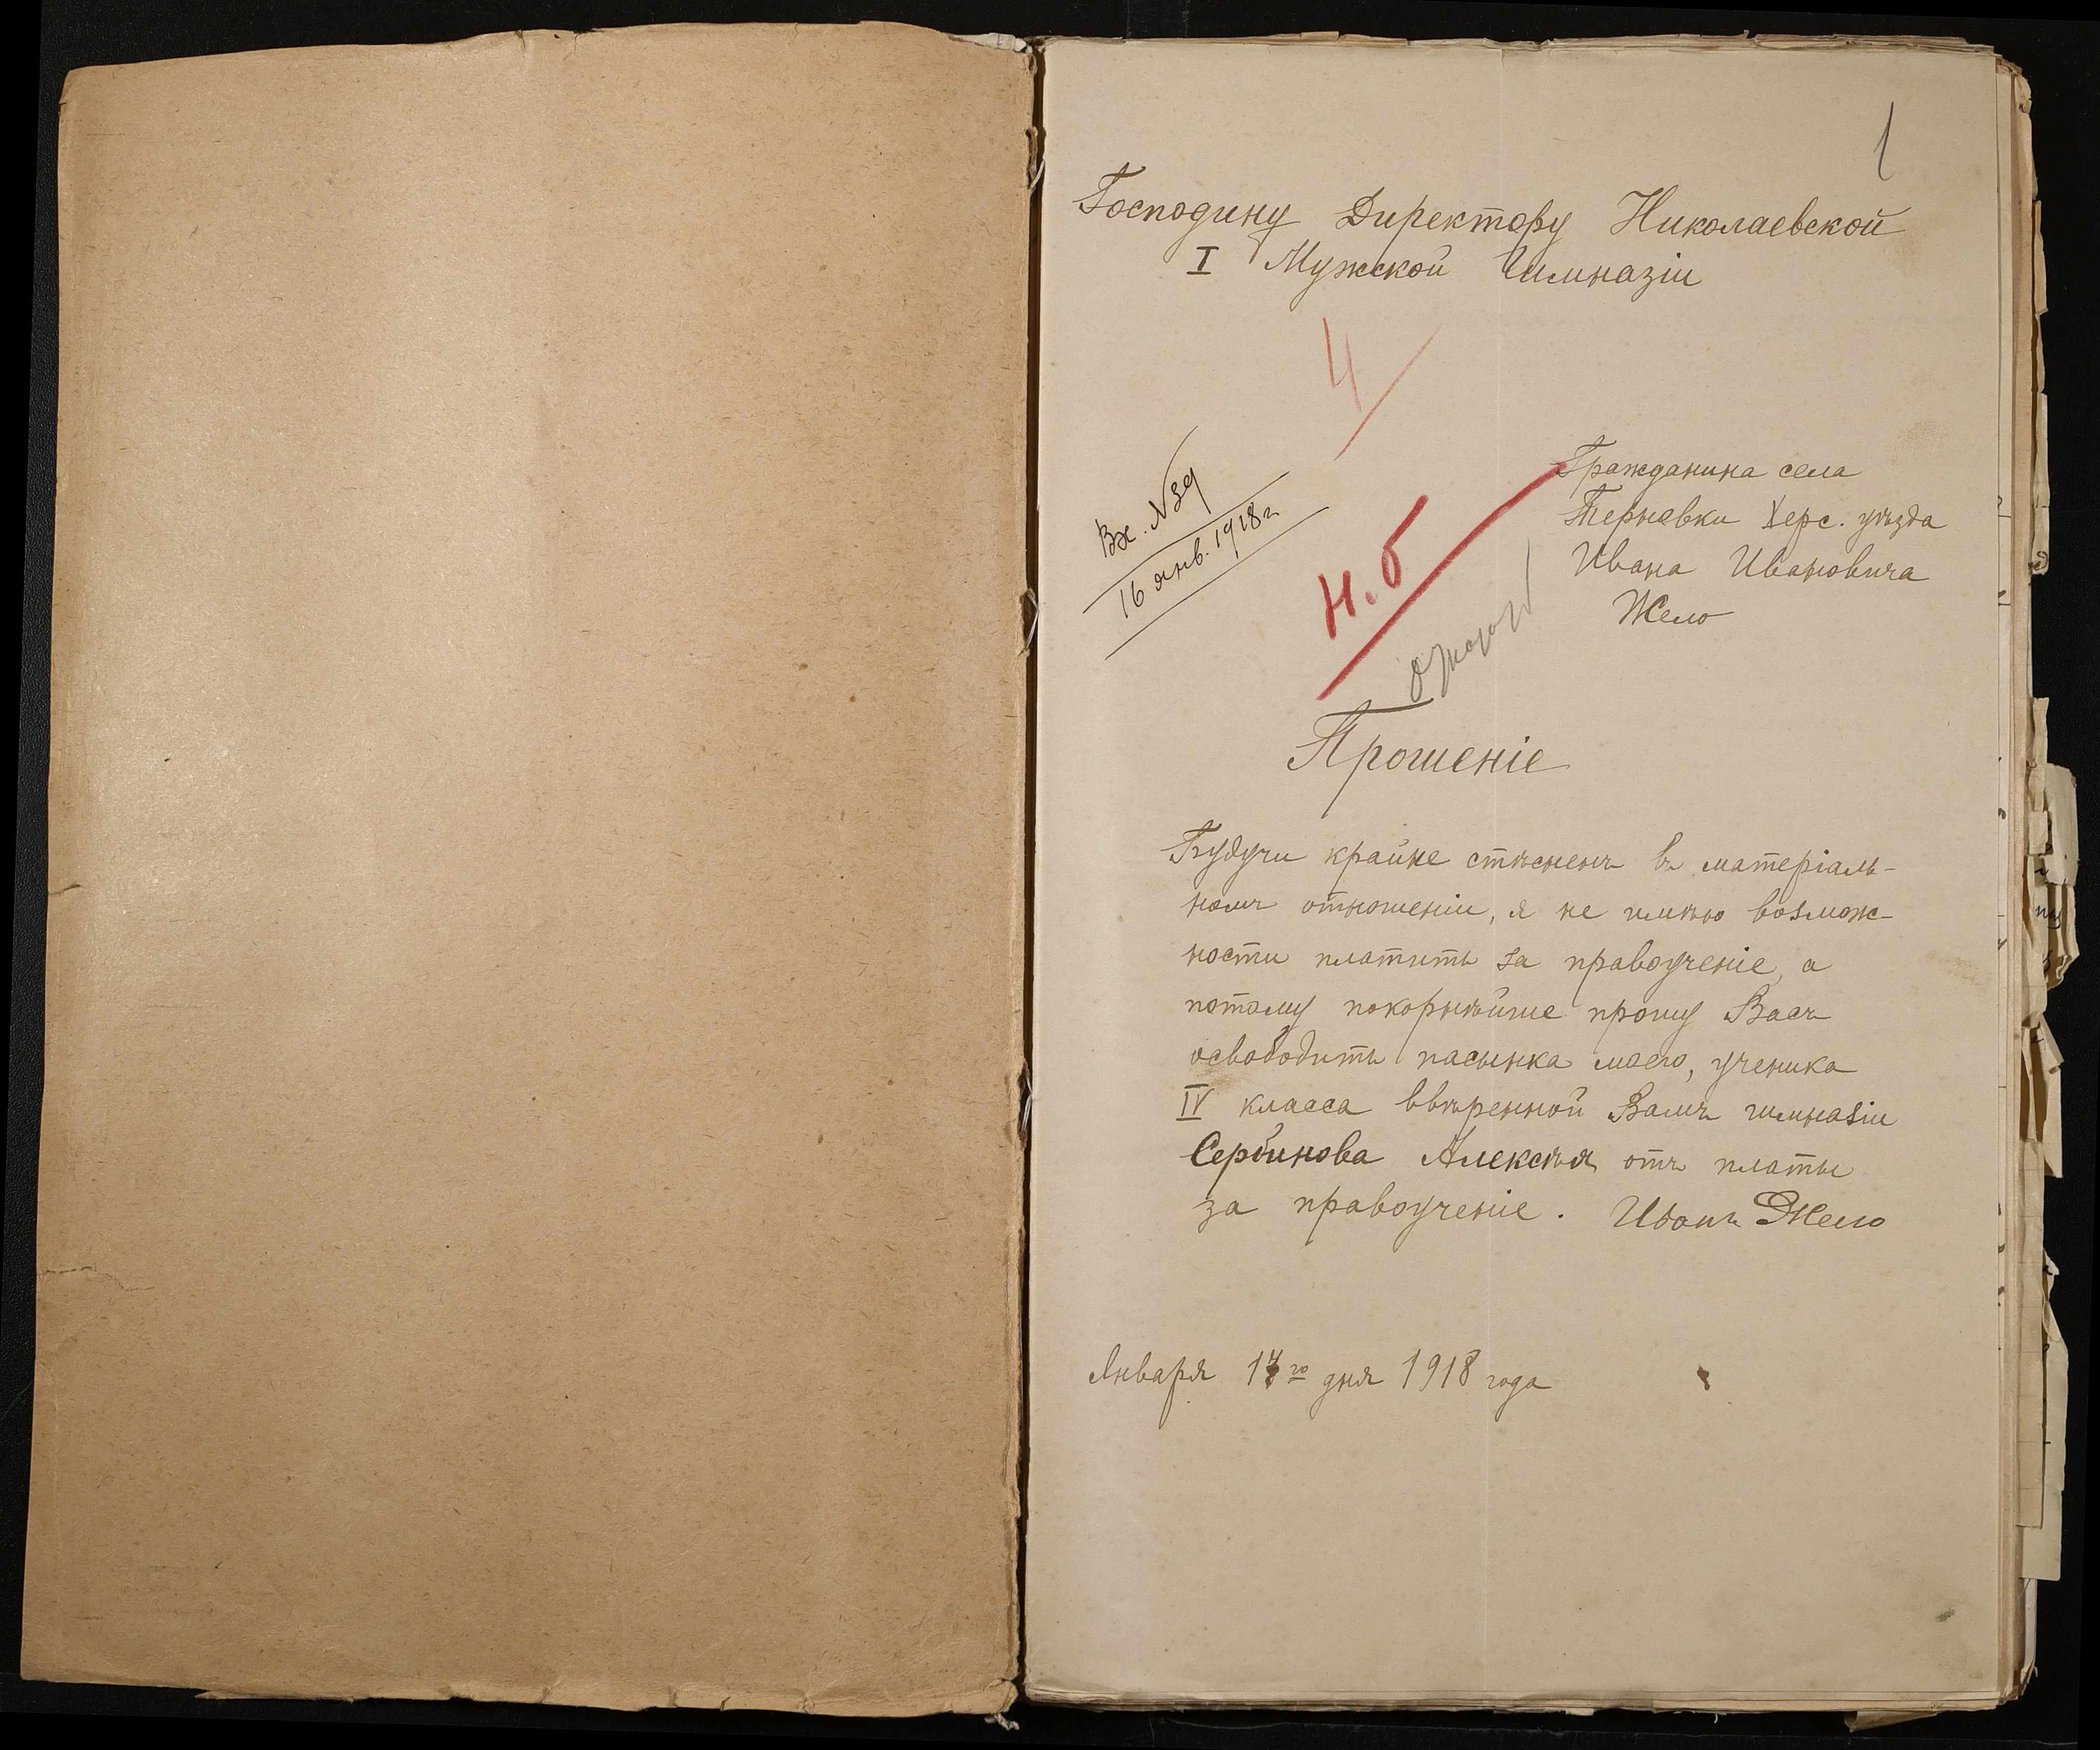 1
Господину Директору Николаевской
I Мужской Гимназіи
4
Вх. №39
16 янв. 1918 г.
Гражданина села
Терновки Херс. уѣзда
Ивана Ивановича
Жело
Н. б
Прошеніе
Будучи крайне стѣсненъ въ матеріаль-
номъ отношеніи, я не имѣю возмож-
ности платить за правоученіе, а
потому покорнѣйше прошу Васъ
освободить пасынка моего, ученика
IV класса ввѣренной Вамъ гимназіи
Сербинова Алексѣя отъ платы
за правоученіе. Иванъ Жело
Января 17го дня 1918 года